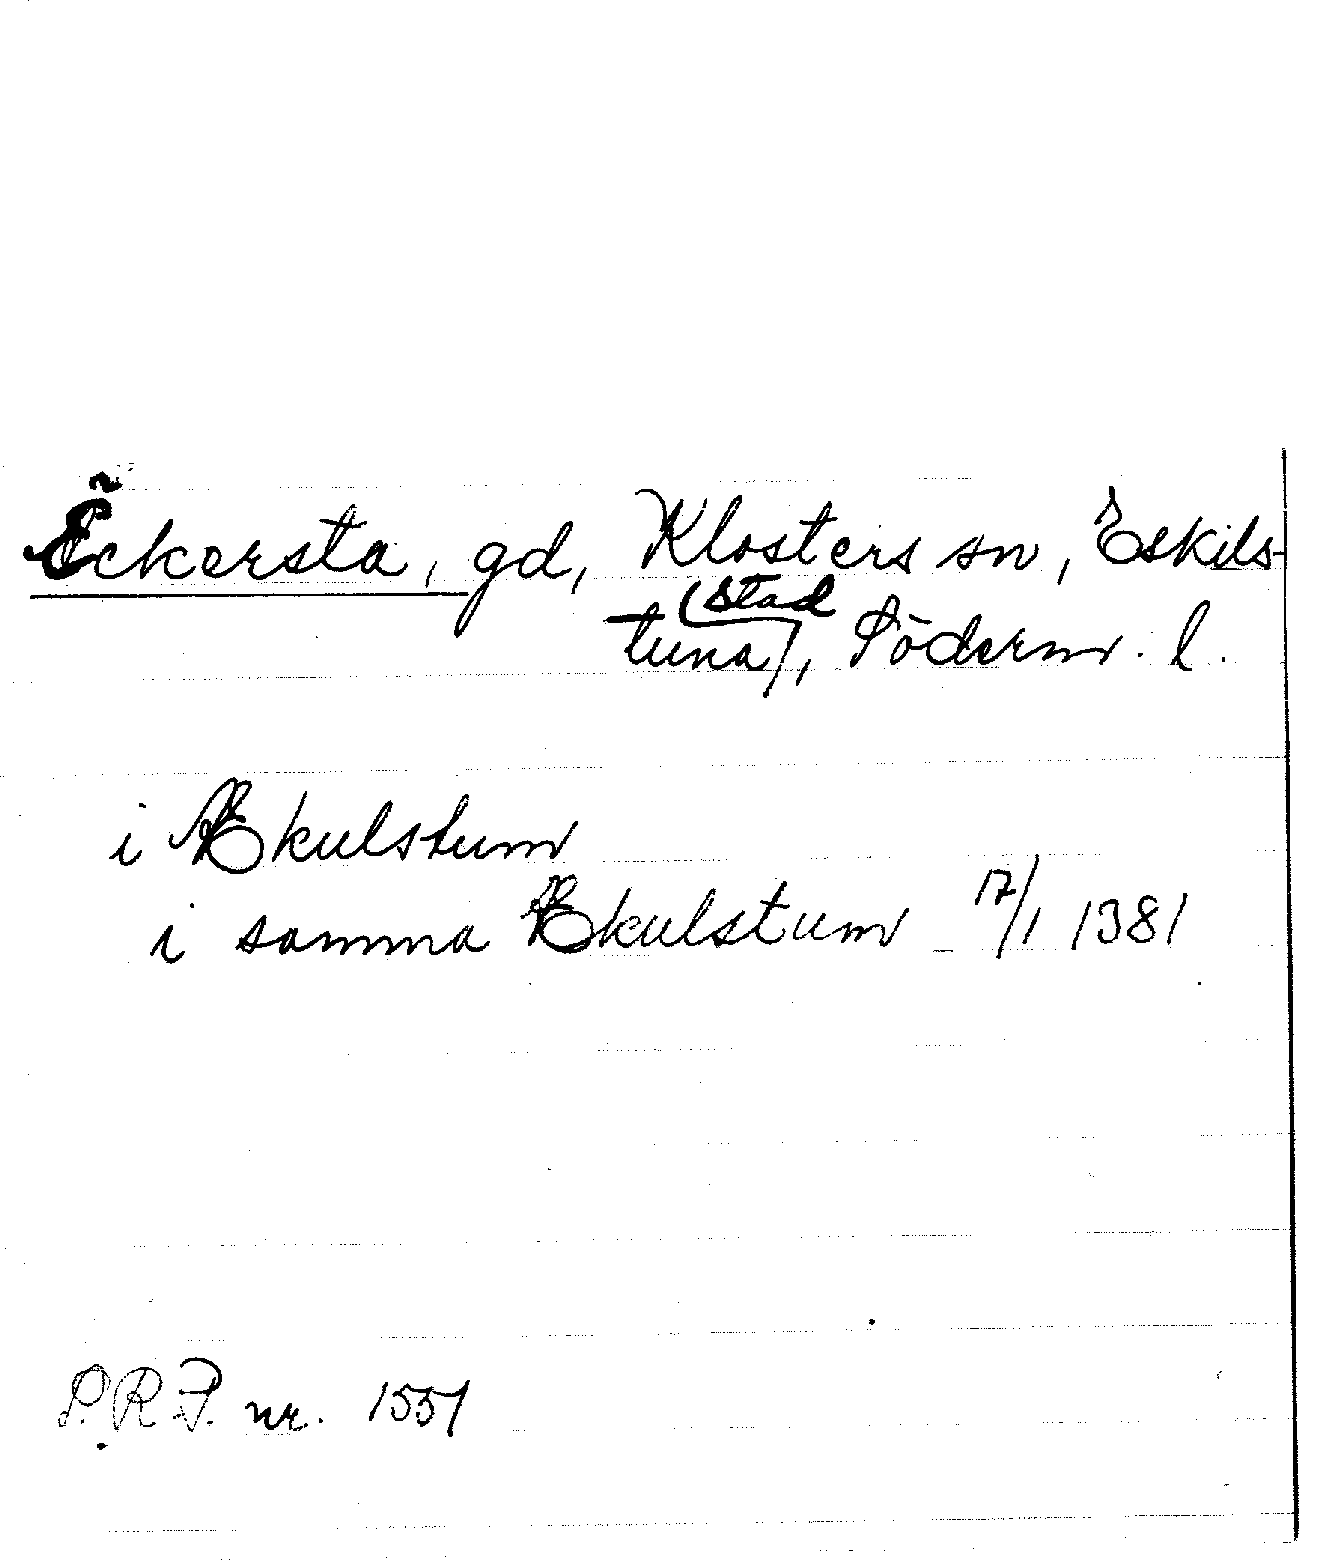 Äckersta, gd, Klosters sn, Eskils-
(stad
tuna), Söderm. l.
i Ækulstum
i samma Ækulstum 17/1 1381
S.R.P. nr. 1551